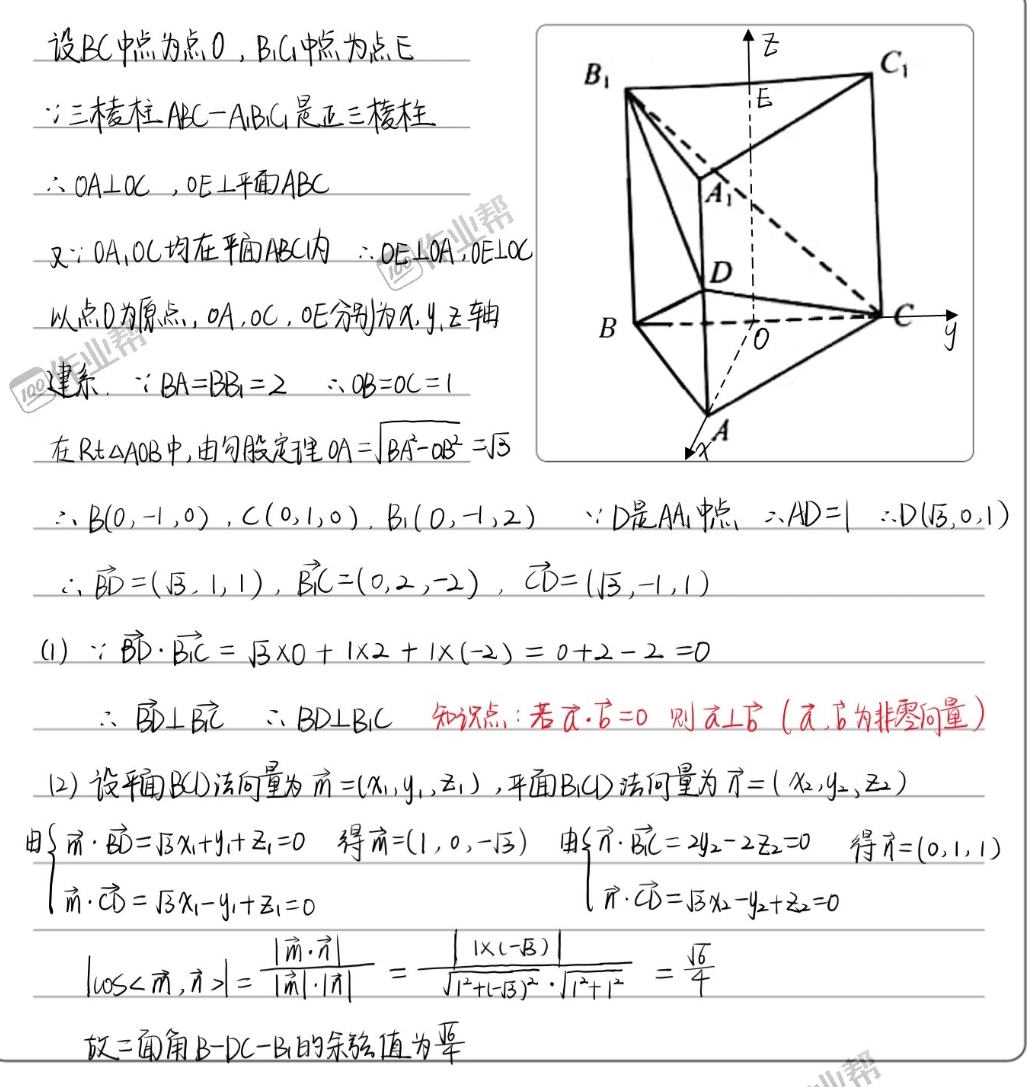 设BC中点为点O，B₁C₁中点为点E
∵三棱柱ABC-A₁B₁C₁是正三棱柱
∴OA⊥OC，OE⊥平面ABC
又∵OA,OC均在平面ABC内 ∴OE⊥OA,OE⊥OC
以点O为原点，OA,OC,OE分别为x,y,z轴
建系. ∵BA=BB₁=2 ∴OB=OC=1
在Rt△AOB中,由勾股定理OA=√(BA²-OB²)=√3
z
B₁
C₁
E
A₁
D
B
O
C
y
A
x
∴B(0,-1,0),C(0,1,0),B₁(0,-1,2) ∵D是AA₁中点 ∴AD=1 ∴D(√3,0,1)
∴BD→=(√3,1,1),B₁C→=(0,2,-2),CD→=(√3,-1,1)
(1) ∵BD→·B₁C→=√3×0+1×2+1×(-2)=0+2-2=0
∴BD→⊥B₁C→ ∴BD⊥B₁C 知识点:若a→·b→=0 则a→⊥b→(a→,b→为非零向量)
(2) 设平面BCD法向量为m→=(x₁,y₁,z₁),平面B₁CD法向量为n→=(x₂,y₂,z₂)
由{m→·BD→=√3x₁+y₁+z₁=0 得m→=(1,0,-√3) 由{n→·B₁C→=2y₂-2z₂=0 得n→=(0,1,1)
m→·CD→=√3x₁-y₁+z₁=0 n→·CD→=√3x₂-y₂+z₂=0
|cos<m→,n→>|=|m→·n→|/(|m→|·|n→|)=|1×(-√3)|/(√(1²+(-√3)²)·√(1²+1²))=√6/4
故二面角B-DC-B₁的余弦值为√6/4
作业帮
作业帮